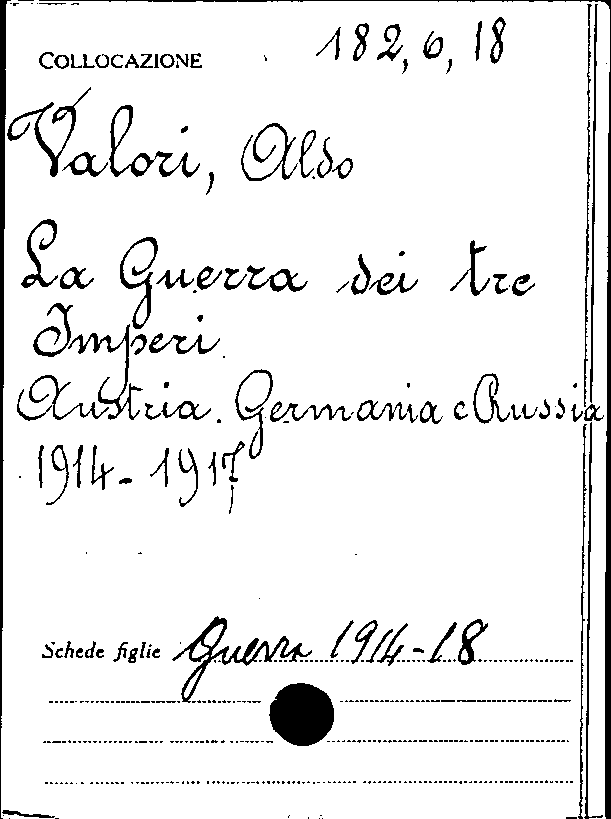 COLLOCAZIONE 182, 6, 18
Valori, Aldo
La Guerra dei tre
Imperi
Austria. Germania e Russia
1914-1917
Schede figlie Guerra 1914-18